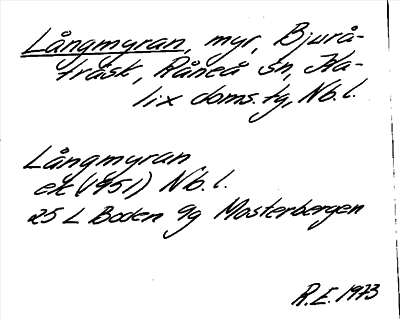 Långmyran, myr, Bjurå-
träsk, Råneå sn, Ka-
lix doms.tg, Nb.l.
Långmyran
ek (1951) Nb.l.
25 L Boden 9g Mosterbergen
R.E. 1973